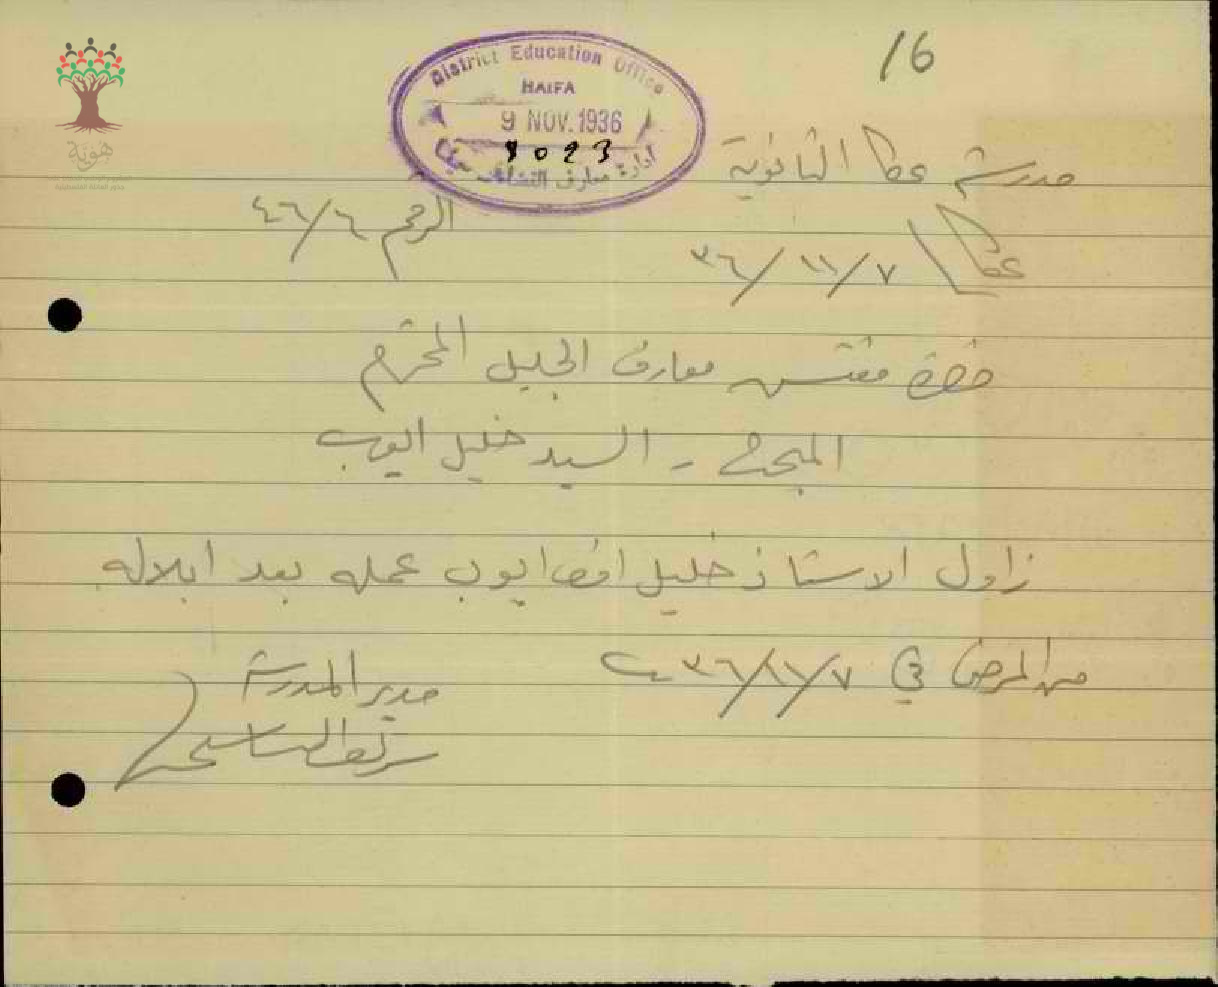 16
District Education Office
HAIFA
9 NOV. 1936
8023
ادارة معارف
مدرسة عكا الثانوية
الرقم ٤٦/٦
عكا ٣٦/١١/٧
حضرة مفتش معارف الجليل المحترم
المبحث - السيد خليل ايوب
زاول الاستاذ خليل ايوب عمله بعد ابلاله
من المرض في ٣٦/١١/٧
مدير المدرسة
هوية